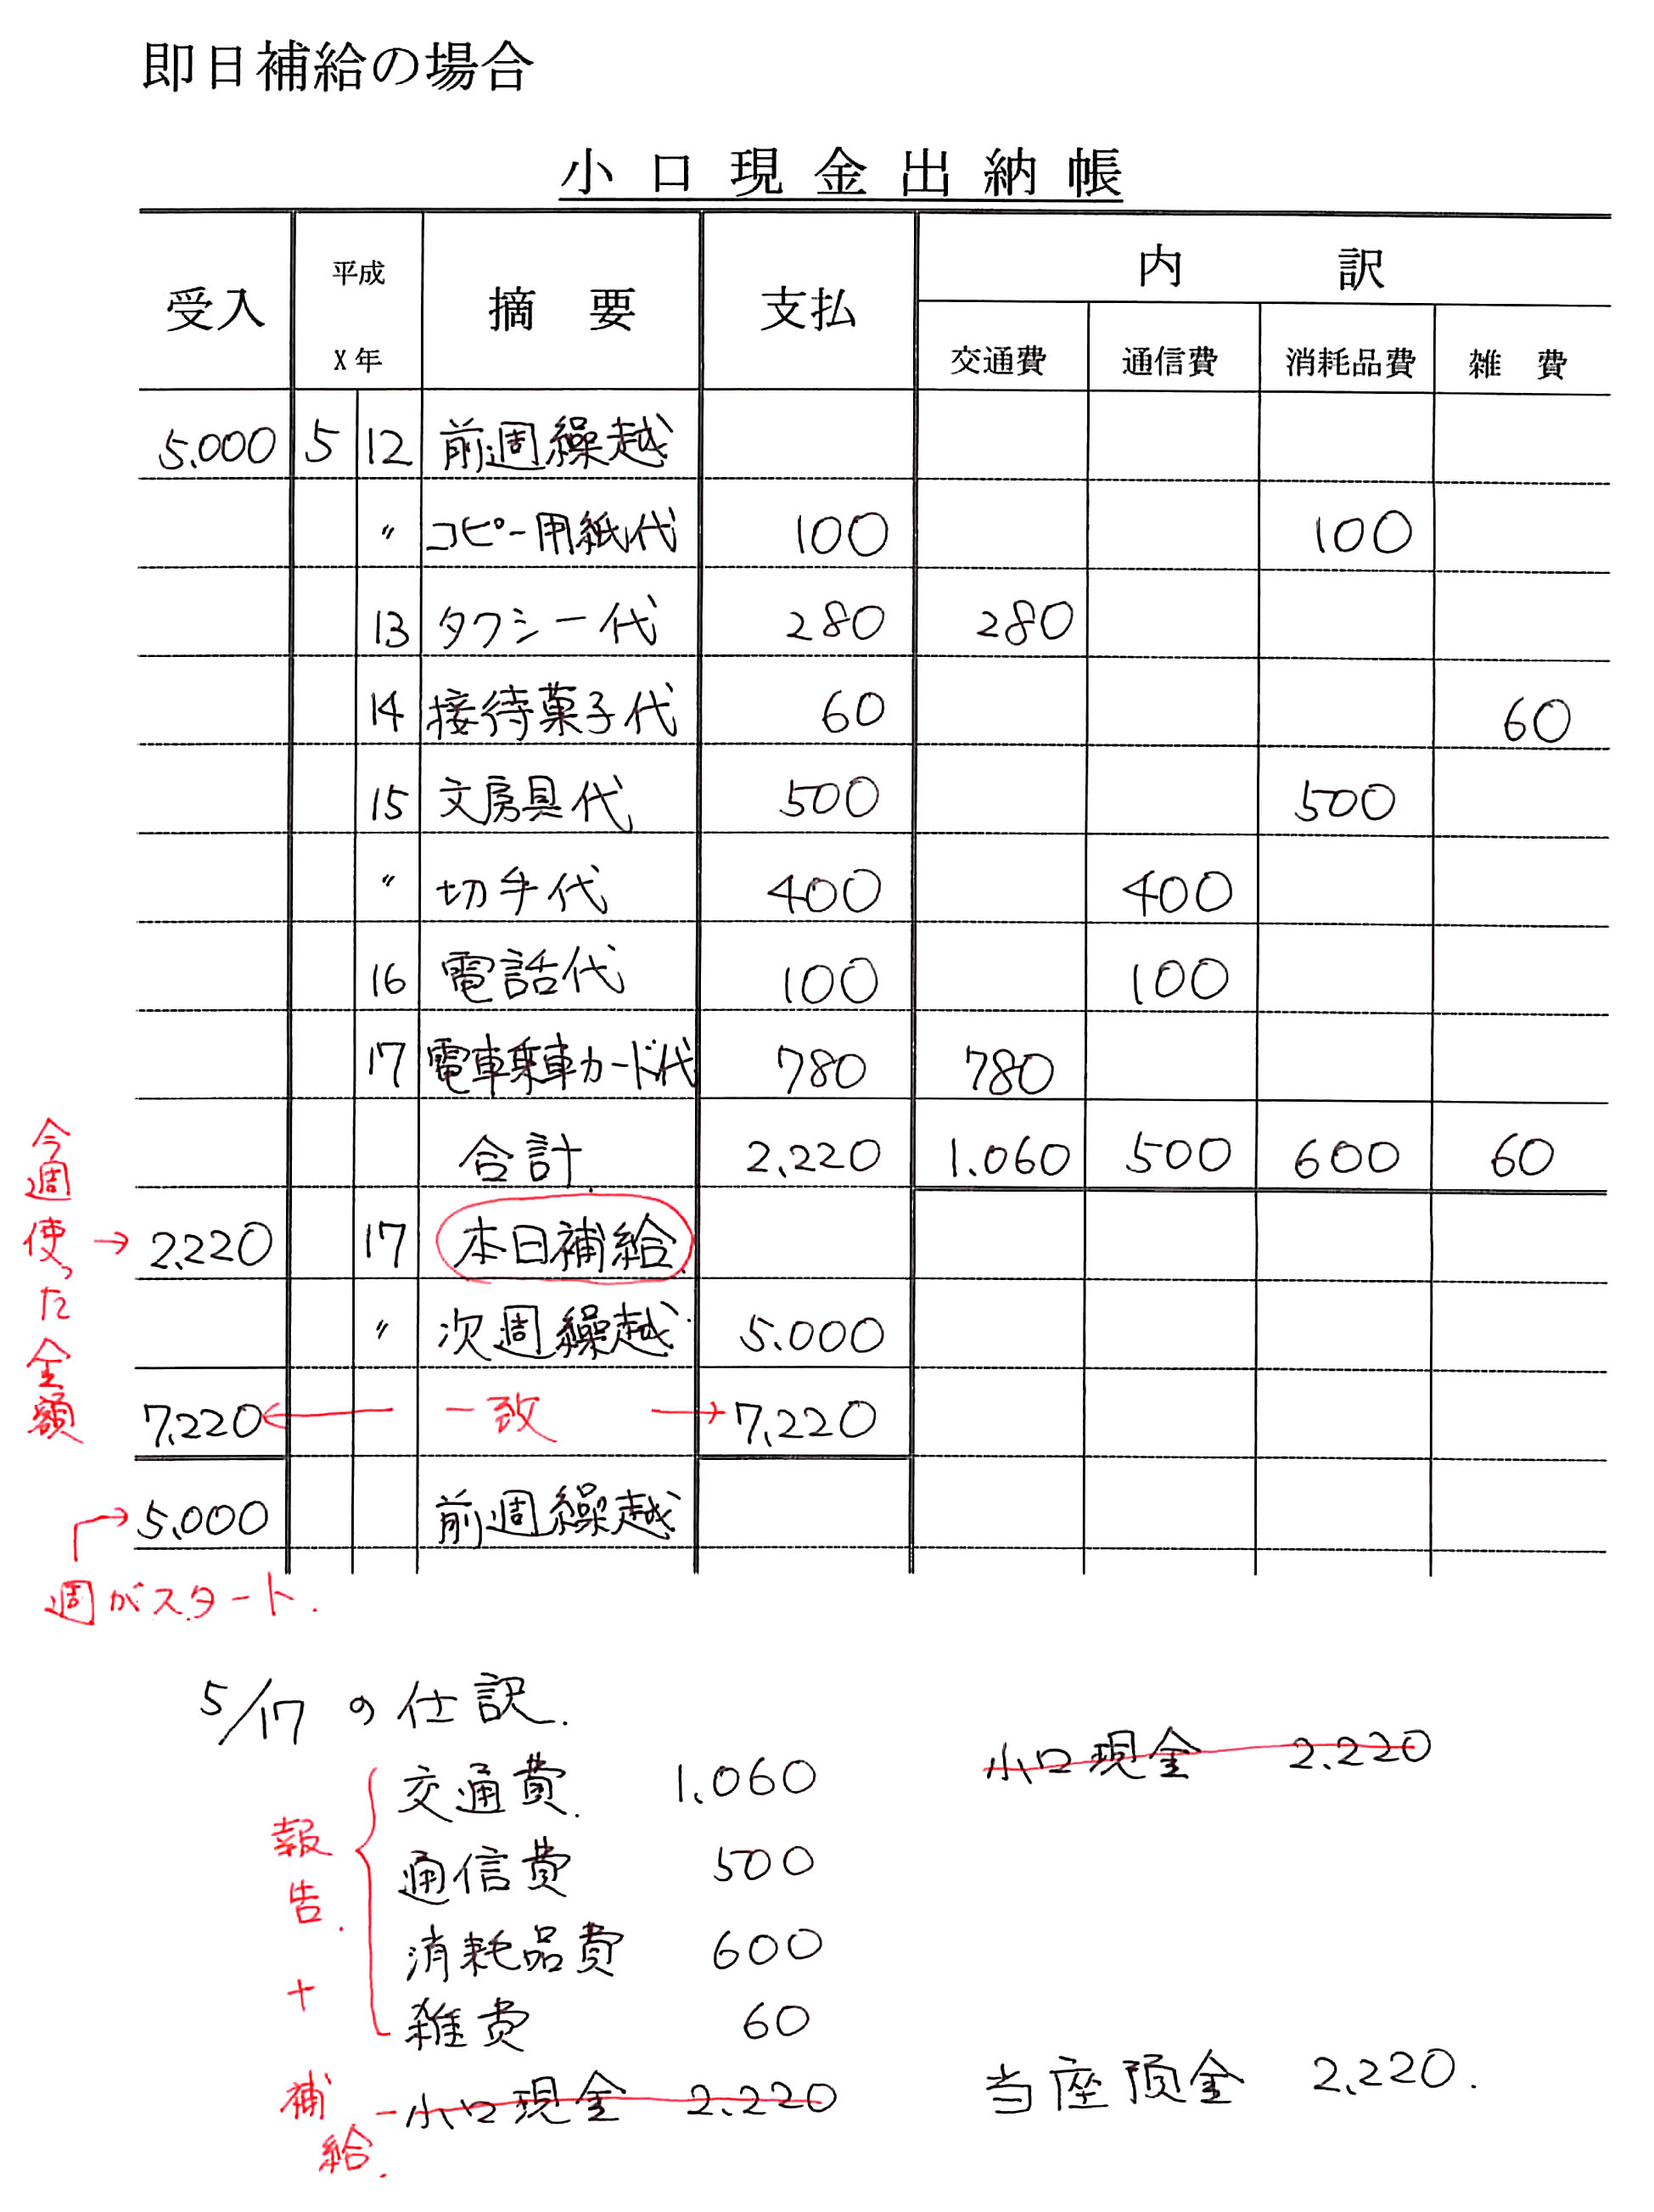 即日補給の場合
小口現金出納帳
受入 平成 X年 摘要 支払 内訳
交通費 通信費 消耗品費 雑費
5.000 5 12 前週繰越
〃 コピー用紙代 100 100
13 タクシー代 280 280
14 接待菓子代 60 60
15 文房具代 500 500
〃 切手代 400 400
16 電話代 100 100
17 電車乗車カード代 780 780
合計 2.220 1.060 500 600 60
今週使った金額 → 2.220 17 本日補給
〃 次週繰越 5.000
7.220 ← 一致 → 7.220
5.000 前週繰越
週がスタート.
5/17 の仕訳.
交通費. 1.060 小口現金 2.220
報告. 通信費 500
消耗品費 600
+ 雑費 60
補給. 小口現金 2.220 当座預金 2.220.